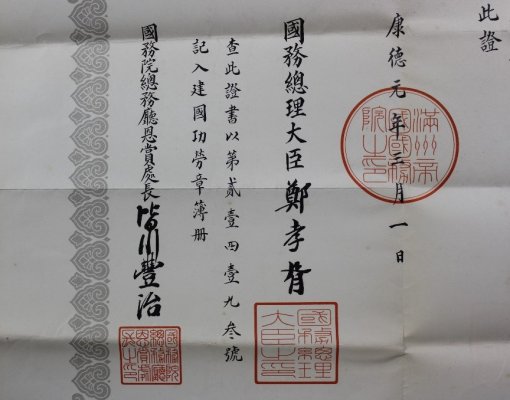 此證
康德元年三月一日
國務總理大臣鄭孝胥
查此證書以第貳壹四壹九叁號
記入建國功勞章簿冊
國務院總務廳恩賞處長皆川豐治
滿洲帝
國國務
院之印